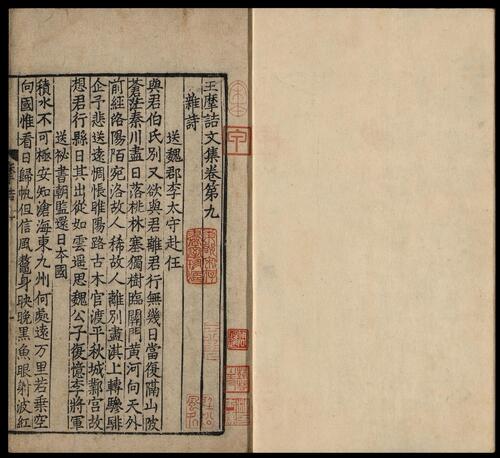 宋本
王摩詰文集卷第九
雜詩
送魏郡李太守赴任
與君伯氏別又欲與君離君行無幾日當復隔山陂
蒼茫秦川盡日落桃林塞獨樹臨關門黃河向天外
前經洛陽陌宛洛故人稀故人離別盡淇上轉驂騑
企予悲送遠惆悵睢陽路古木官渡平秋城鄴宮故
想君行縣日其出從如雲遥思魏公子復憶李將軍
送祕書朝監還日本國
積水不可極安知滄海東九州何處遠萬里若乘空
向國惟看日歸帆但信風鼇身映晚黑魚眼射波紅